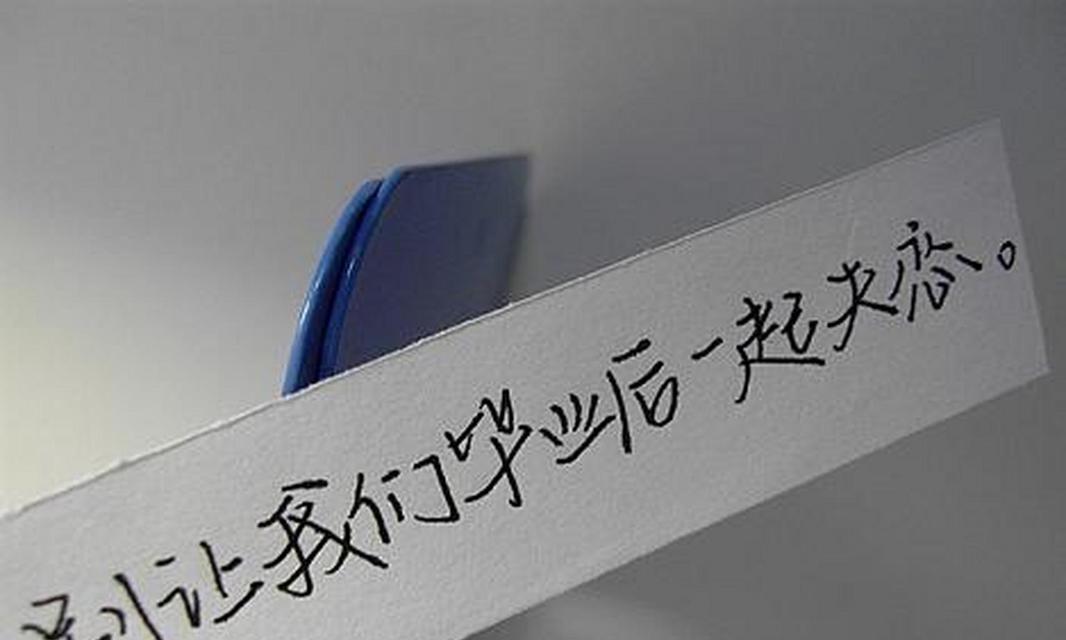 别让我们毕业后一起失恋。